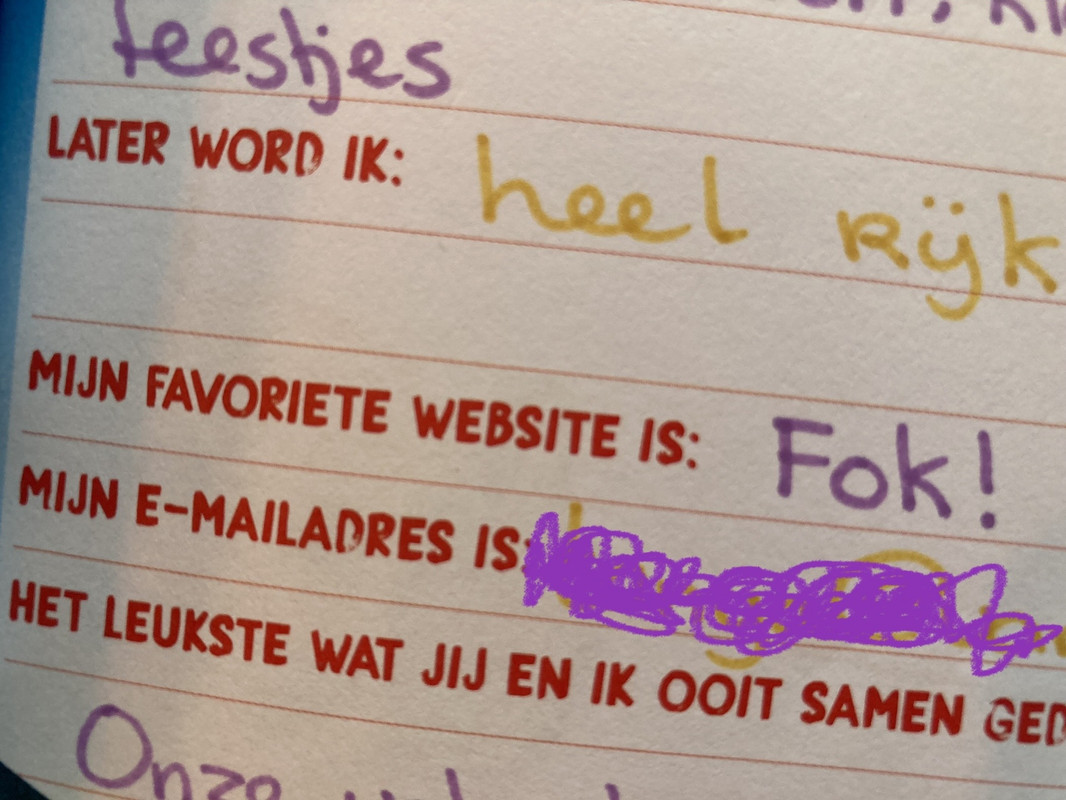 feestjes
LATER WORD IK: heel rijk
MIJN FAVORIETE WEBSITE IS: Fok!
MIJN E-MAILADRES IS:
HET LEUKSTE WAT JIJ EN IK OOIT SAMEN GED
Onze